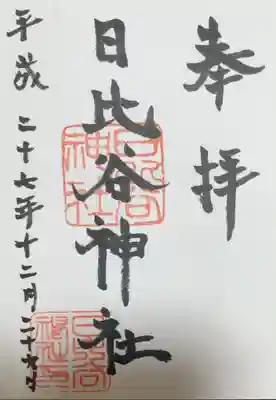 奉拝
日比谷神社
平成二十七年十二月二十六日
日比谷神社